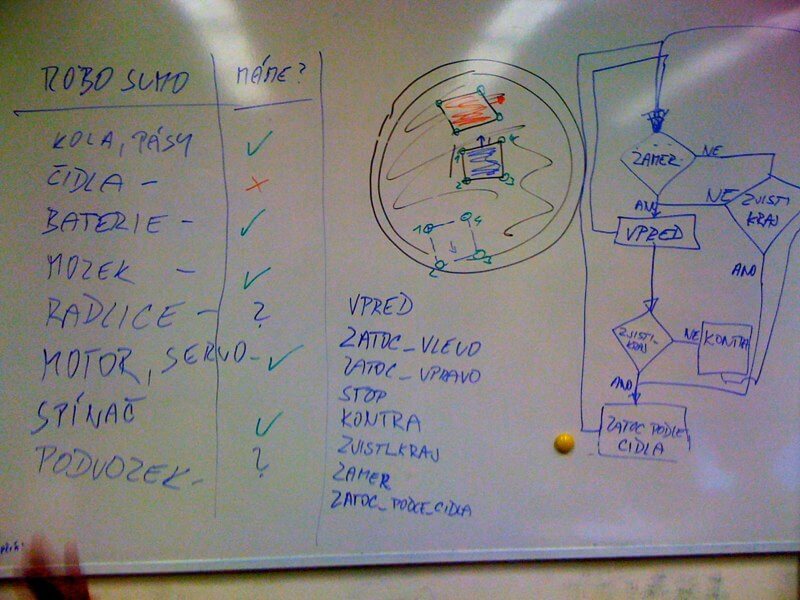 ROBO SUMO MÁME?
KOLA, PÁSY ✓
ČIDLA - ×
BATERIE - ✓
MOZEK - ✓
RADLICE - ?
MOTOR, SERVO - ✓
SPÍNAČ ✓
PODVOZEK - ?
1 4
2 3
1 4
2 3
VPRED
ZATOC_VLEVO
ZATOC_VPRAVO
STOP
KONTRA
ZJISTI_KRAJ
ZAMER
ZATOC_PODLE_CIDLA
ZAMER
NE
ANO
VPRED
NE
ZJISTI
KRAJ
ANO
ZJISTI_
KRAJ
NE
KONTRA
ANO
ZATOC PODLE
CIDLA